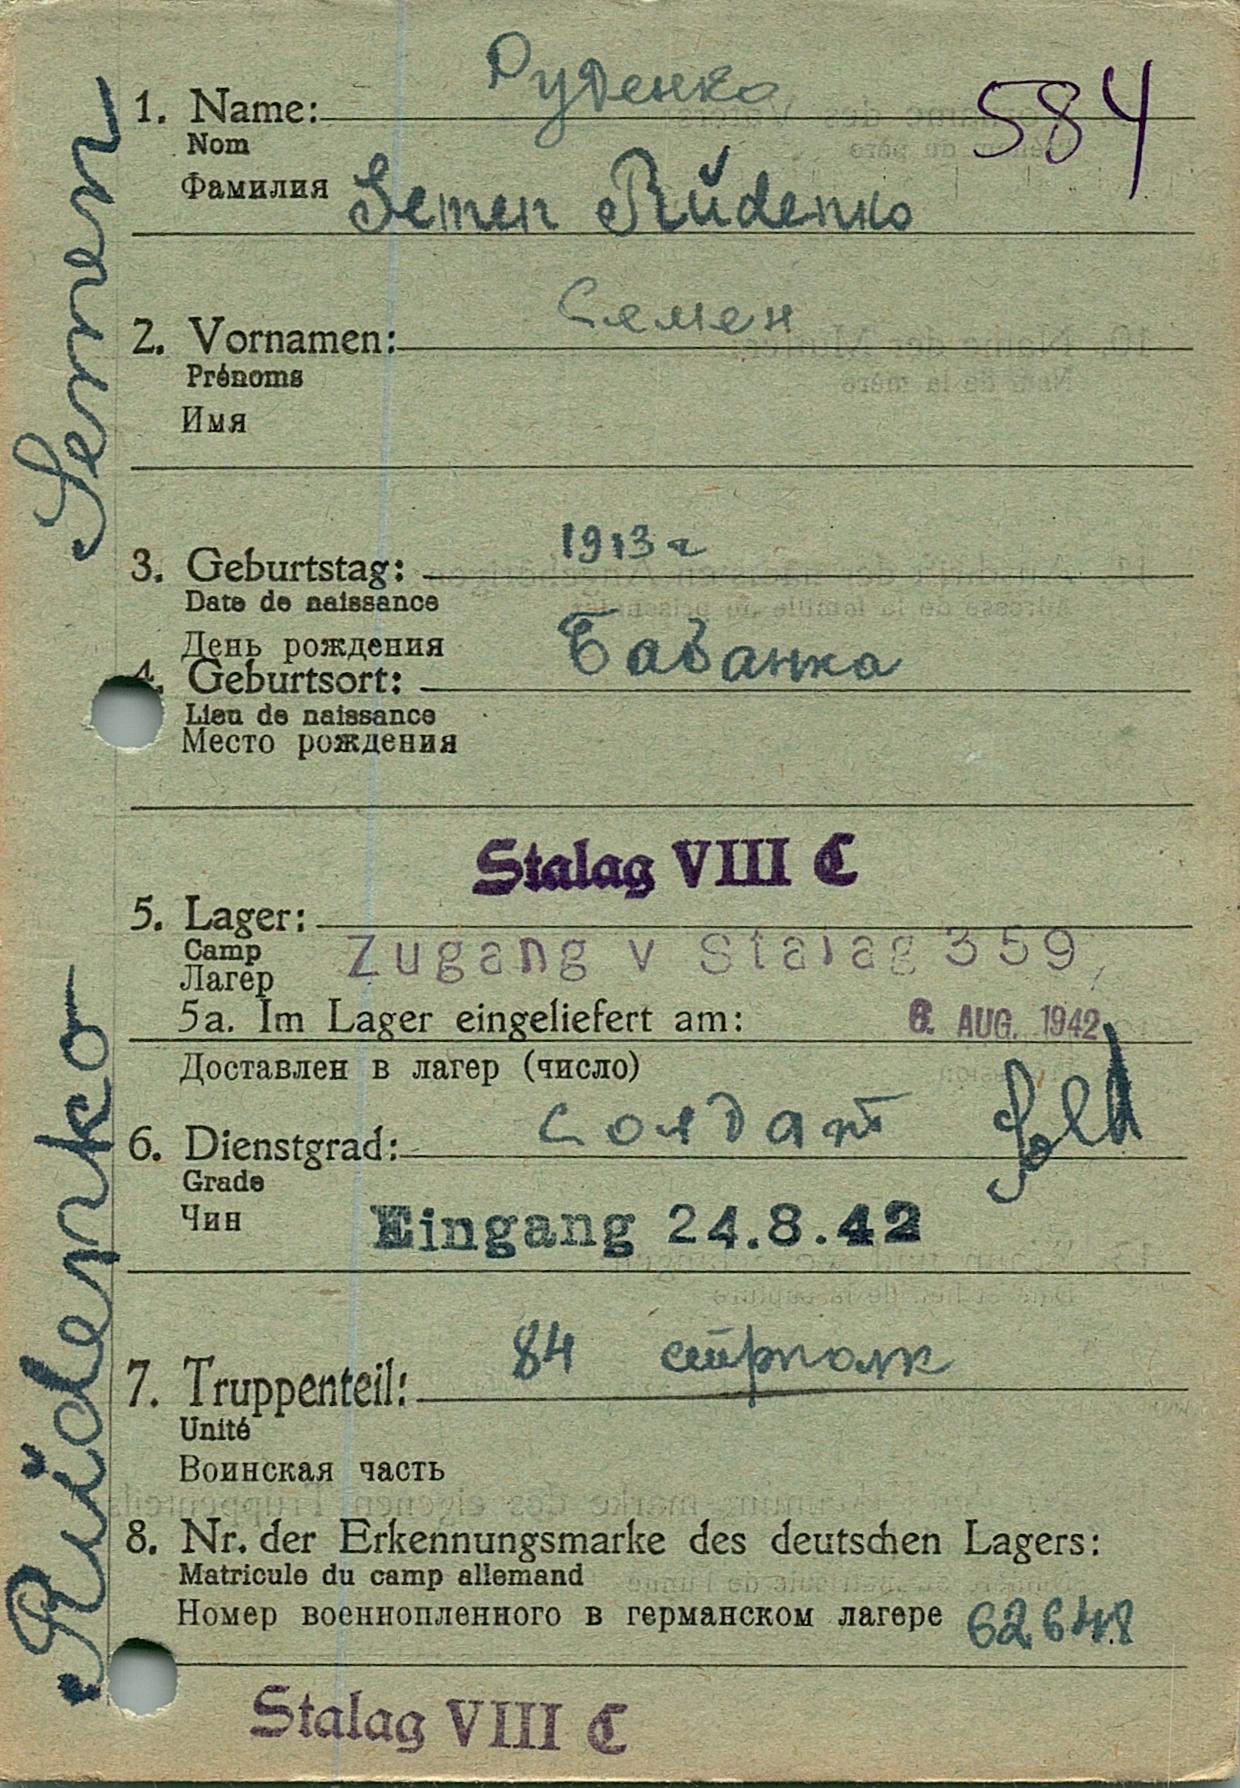 Руденко
584
1. Name:
Nom
Фамилия Semen Rŭdenko
Семен
2. Vornamen:
Prénoms
Имя
1913 г
3. Geburtstag:
Date de naissance
День рождения
4. Geburtsort: Бабанка
Lieu de naissance
Место рождения
Stalag VIII C
5. Lager:
Camp Zugang v Stalag 359,
Лагерь
5a. Im Lager eingeliefert am: 6. AUG. 1942
Доставлен в лагерь (число)
6. Dienstgrad: солдат Sold
Grade
Чин Eingang 24.8.42
84 стрполк
7. Truppenteil:
Unité
Воинская часть
8. Nr. der Erkennungsmarke des deutschen Lagers:
Matricule du camp allemand
Номер военнопленного в германском лагере 62648
Stalag VIII C
Rŭdenko Semen